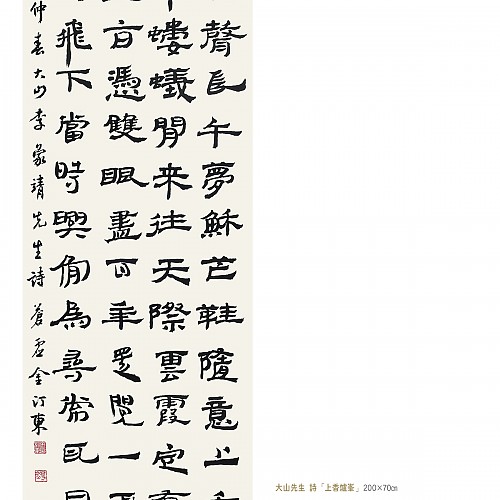 聲長午夢穌芒鞋隨意上
螻蟻閒來往天際雲霞定
方憑雙眼盡百年覺一
飛下當時興為尋常
仲春大山李象靖先生詩 蒼金汀東
大山先生 詩「上香爐峯」 200×70㎝